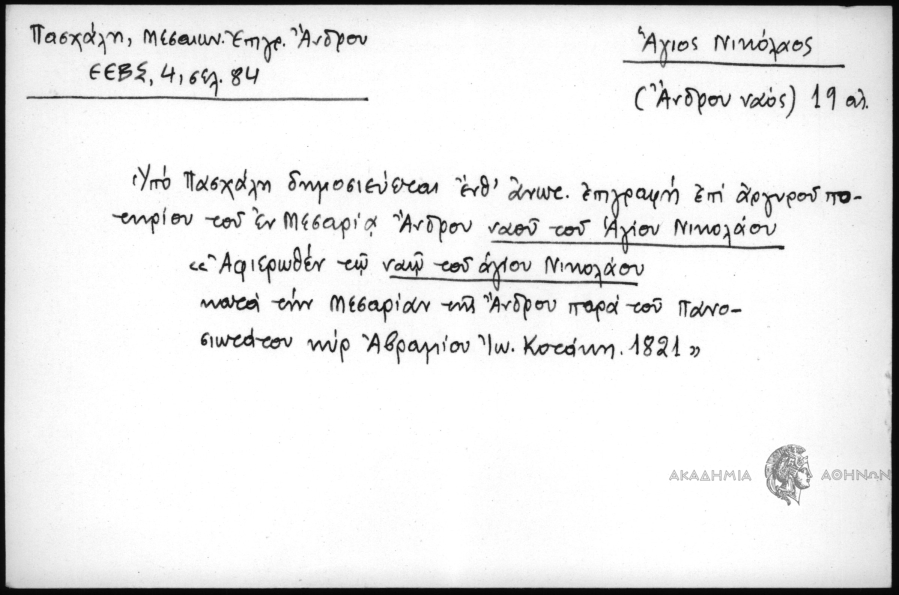 Πασχάλη, Μεσαιων. Ἐπιγρ. Ἄνδρου
ΕΕΒΣ, 4, σελ. 84
Ἅγιος Νικόλαος
(Ἄνδρου ναός) 19 αἰ.
Ὑπό Πασχάλη δημοσιεύεται ἔνθ' ἄνωτ. ἐπιγραφή ἐπί ἀργυροῦ πο-
τηρίου τοῦ ἐν Μεσαριᾷ Ἄνδρου ναοῦ τοῦ Ἁγίου Νικολάου
«Ἀφιερωθέν τῷ ναῷ τοῦ ἁγίου Νικολάου
κατά τήν Μεσαρίαν τῆς Ἄνδρου παρά τοῦ Πανο-
σιωτάτου κύρ Ἀβραμίου Ἰω. Κοτάκη. 1821»
ΑΚΑΔΗΜΙΑ ΑΘΗΝΩΝ